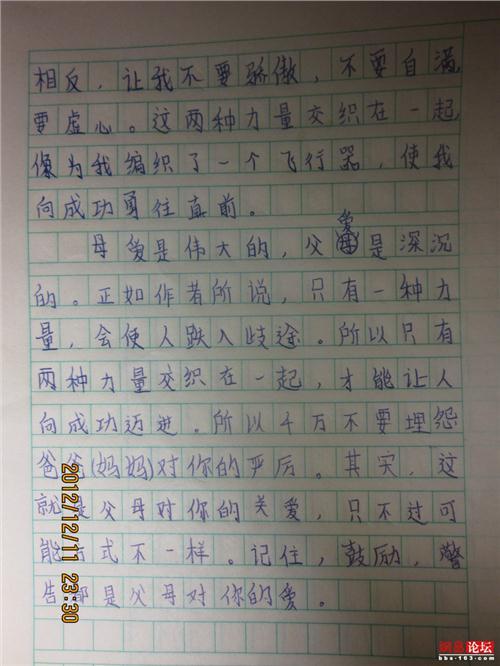 相反，让我不要骄傲，不要自满
要虚心。这两种力量交织在一起
像为我编织了一个飞行器，使我
向成功勇往直前。
母爱是伟大的，父爱是深沉
的。正如作者所说，只有一种力
量，会使人跌入歧途。所以只有
两种力量交织在一起，才能让人
向成功迈进。所以千万不要埋怨
爸爸(妈妈)对你的严厉。其实，这
就是父母对你的关爱，只不过可
能方式不一样。记住，鼓励，警
告都是父母对你的爱。
2012/12/11 23:30
网易论坛
bbs.163.com